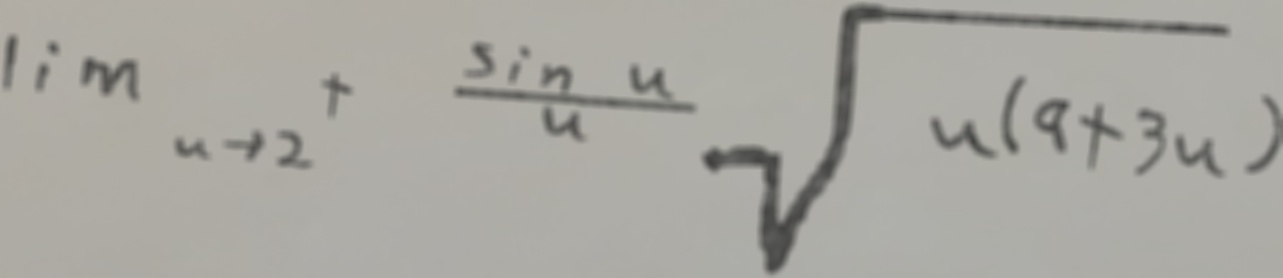 lim_{u→2^+} \frac{sin u}{u} \sqrt{u(9+3u)}